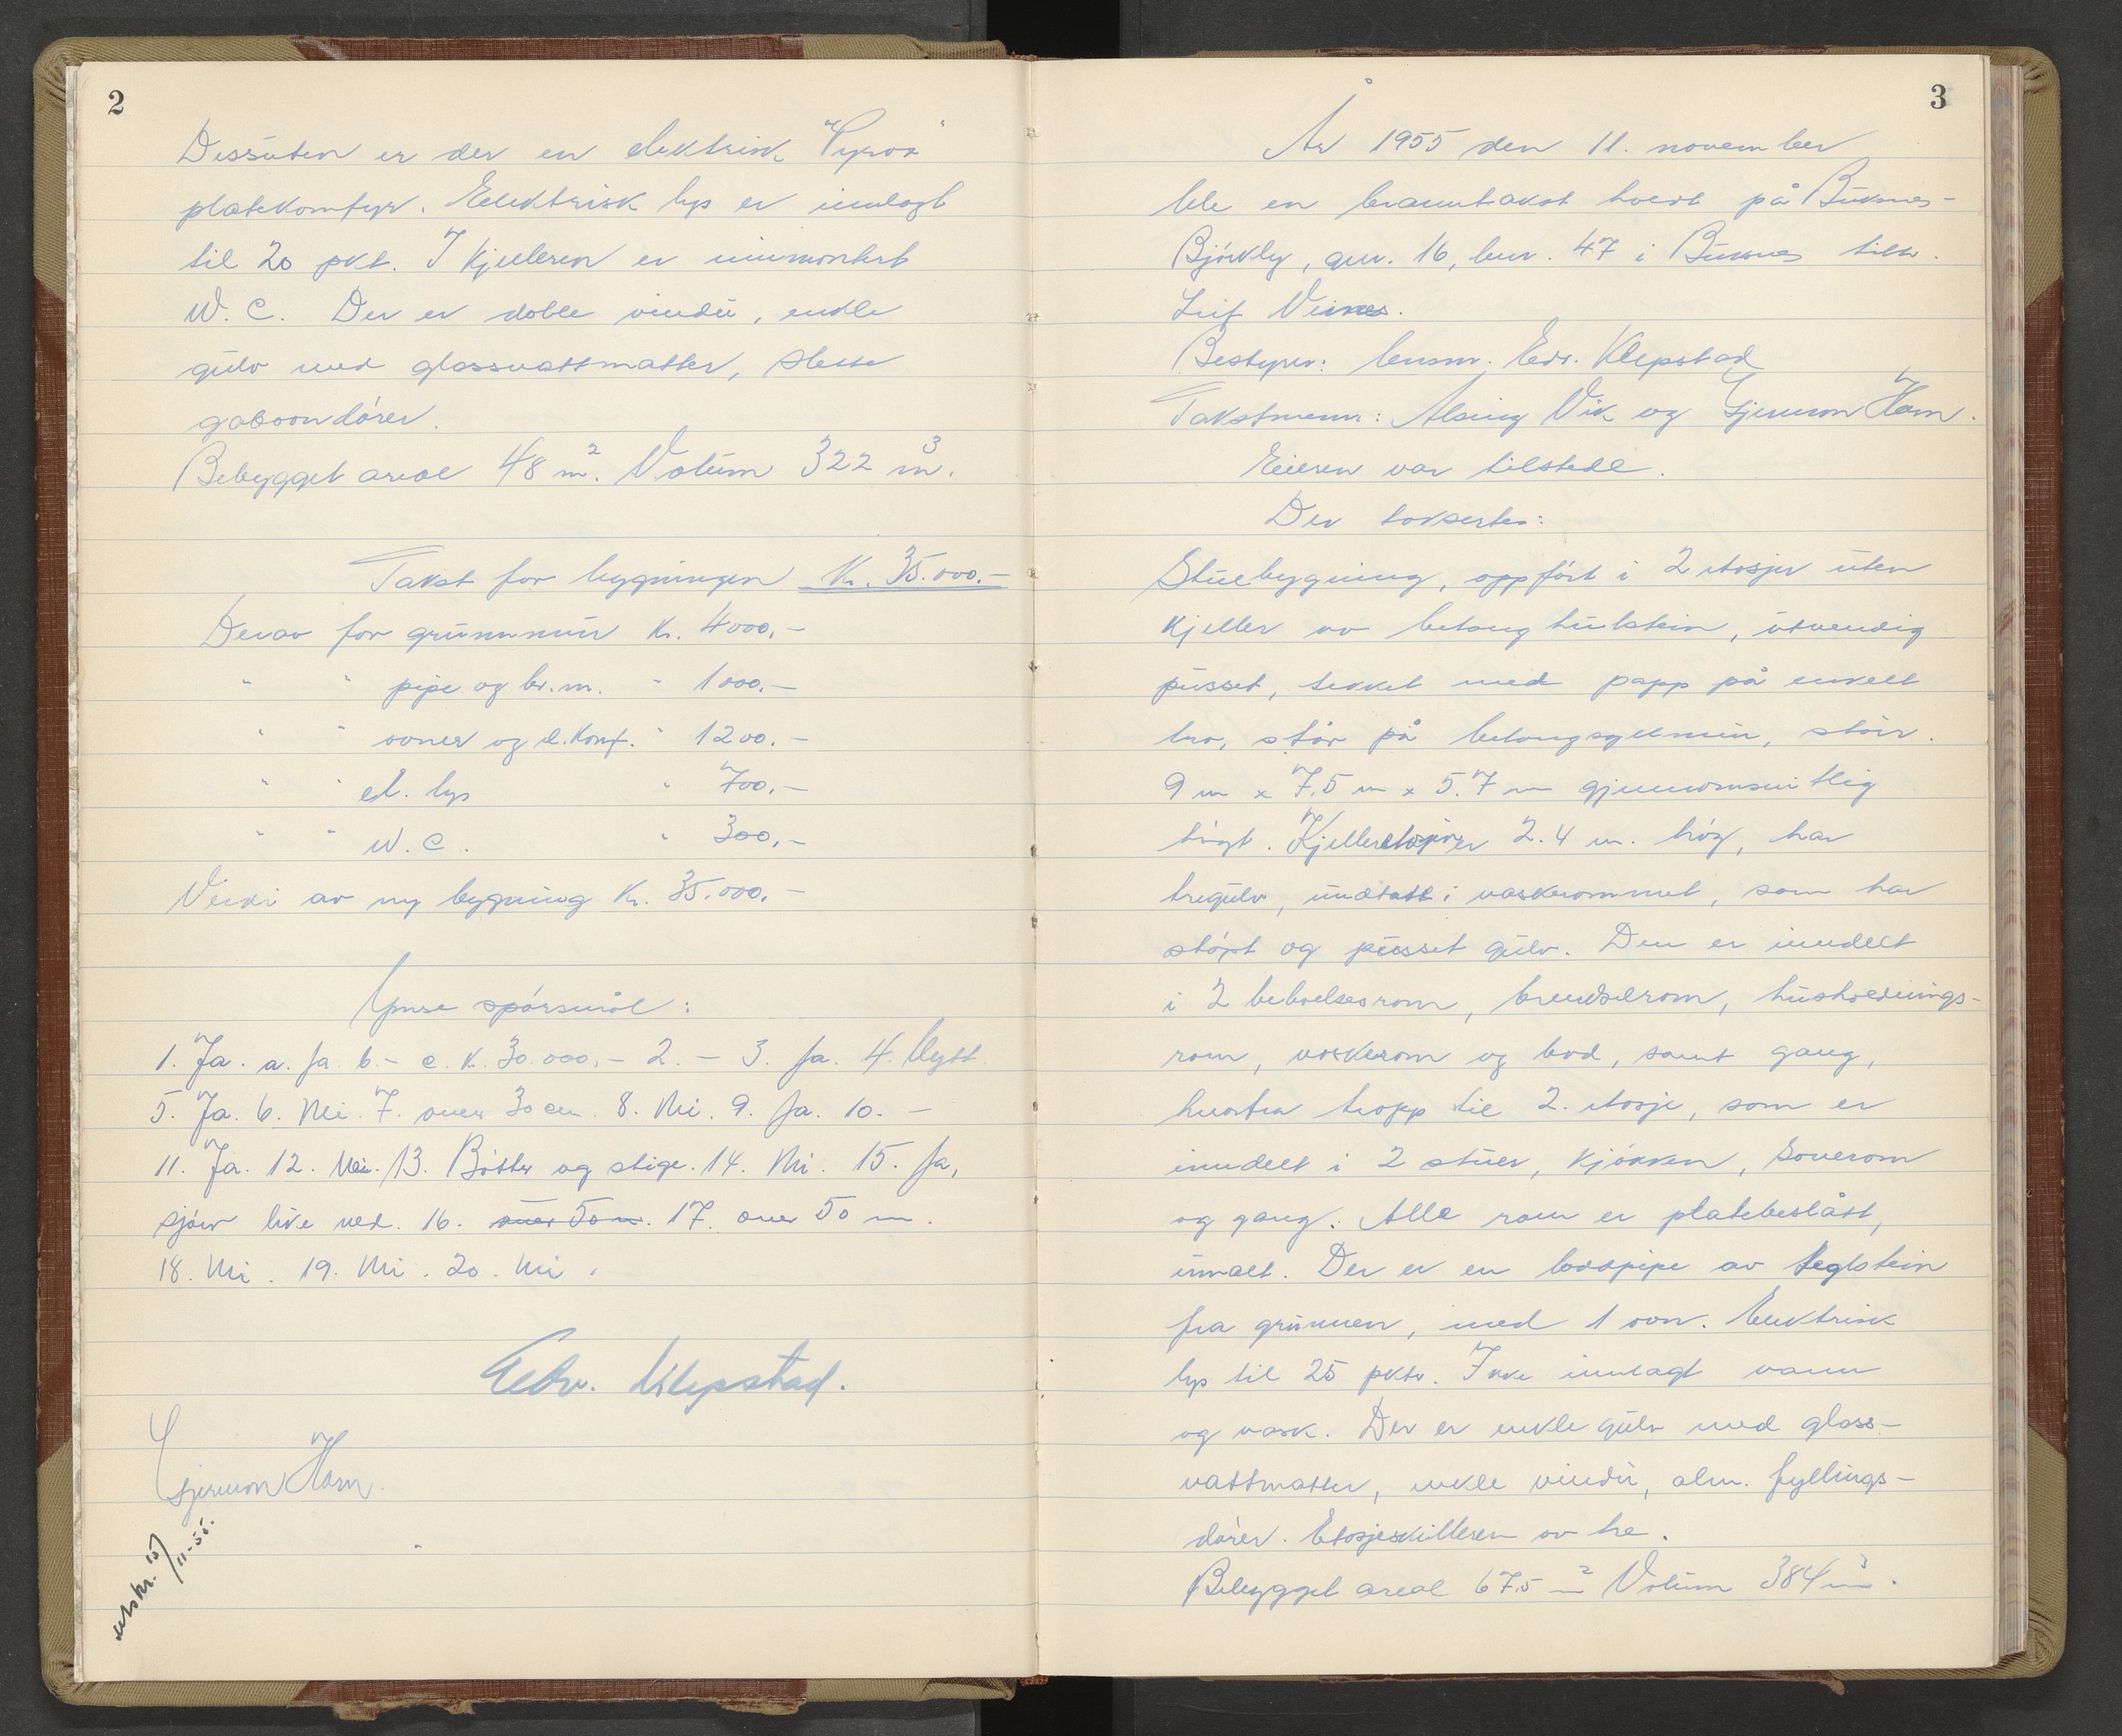 2
Dessuten er der en elektrisk "Pyrox"
platekomfyr. Elektrisk lys er innlagt
til 20 pkt. I kjelleren er innmontert
W.C. Der er doble vindu, enkle
gulv med glassvattmatter, slette
gaboondører.
Bebygget areal 48 m². Volum 322 m³.
Takst for bygningen Kr. 35.000.-
Derav for grunnmur Kr. 4000,-
" " pipe og br.m. " 1000,-
" " ovner og el.komf. " 1200.-
" " el. lys " 700,-
" " W.C. " 300,-
Verdi av ny bygning Kr. 35.000,-
Ymse spørsmål:
1. Ja. a. Ja. b.- c. K. 30.000,- 2. - 3. Ja. 4. Nytt
5. Ja. 6. Nei. 7. over 30 cm. 8. Nei. 9. Ja. 10. -
11. Ja. 12. Nei. 13. Bøtter og stige. 14. Nei. 15. Ja,
sjøen like ved. 16. over 50 m. 17. over 50 m.
18. Nei. 19. Nei. 20. Nei.
Edv. Klepstad.
Gjermon Ham.
utskr. 15/11-55.
3
År 1955 den 11. november
ble en branntakst holdt på Buknes-
Bjørkly, gnr. 16, bnr. 47 i Buknes tilh.
Leif Veines.
Bestyrer: lensm. Edv. Klepstad
Takstmenn: Alsing Vik og Gjermon Ham.
Eieren var tilstede.
Der taksertes:
Stuebygning, oppført i 2 etasjer uten
kjeller av betong hulstein, utvendig
pusset, tekket med papp på enkelt
bro, står på betongsyllmur, størr.
9 m x 7,5 m x 5.7 m gjennomsnitlig
høgt. Kjelleretasjen er 2.4 m. høg, har
tregulv, undtatt i vaskerommet, som har
støpt og pusset gulv. Den er inndelt
i 2 beboelsesrom, brendselrom, husholdnings-
rom, vaskerom og bod, samt gang,
hvorfra trapp til 2. etasje, som er
inndelt i 2 stuer, kjøkken, soverom
og gang. Alle rom er platebeslått,
umalt. Der er en loddpipe av teglstein
fra grunnen, med 1 ovn. Elektrisk
lys til 25 pktr. Ikke innlagt vann
og vask. Der er enkle gulv med glass-
vattmatter, enkle vindu, alm. fyllings-
dører. Etasjeskilleren av tre.
Bebygget areal 67,5 m² Volum 384 m³.